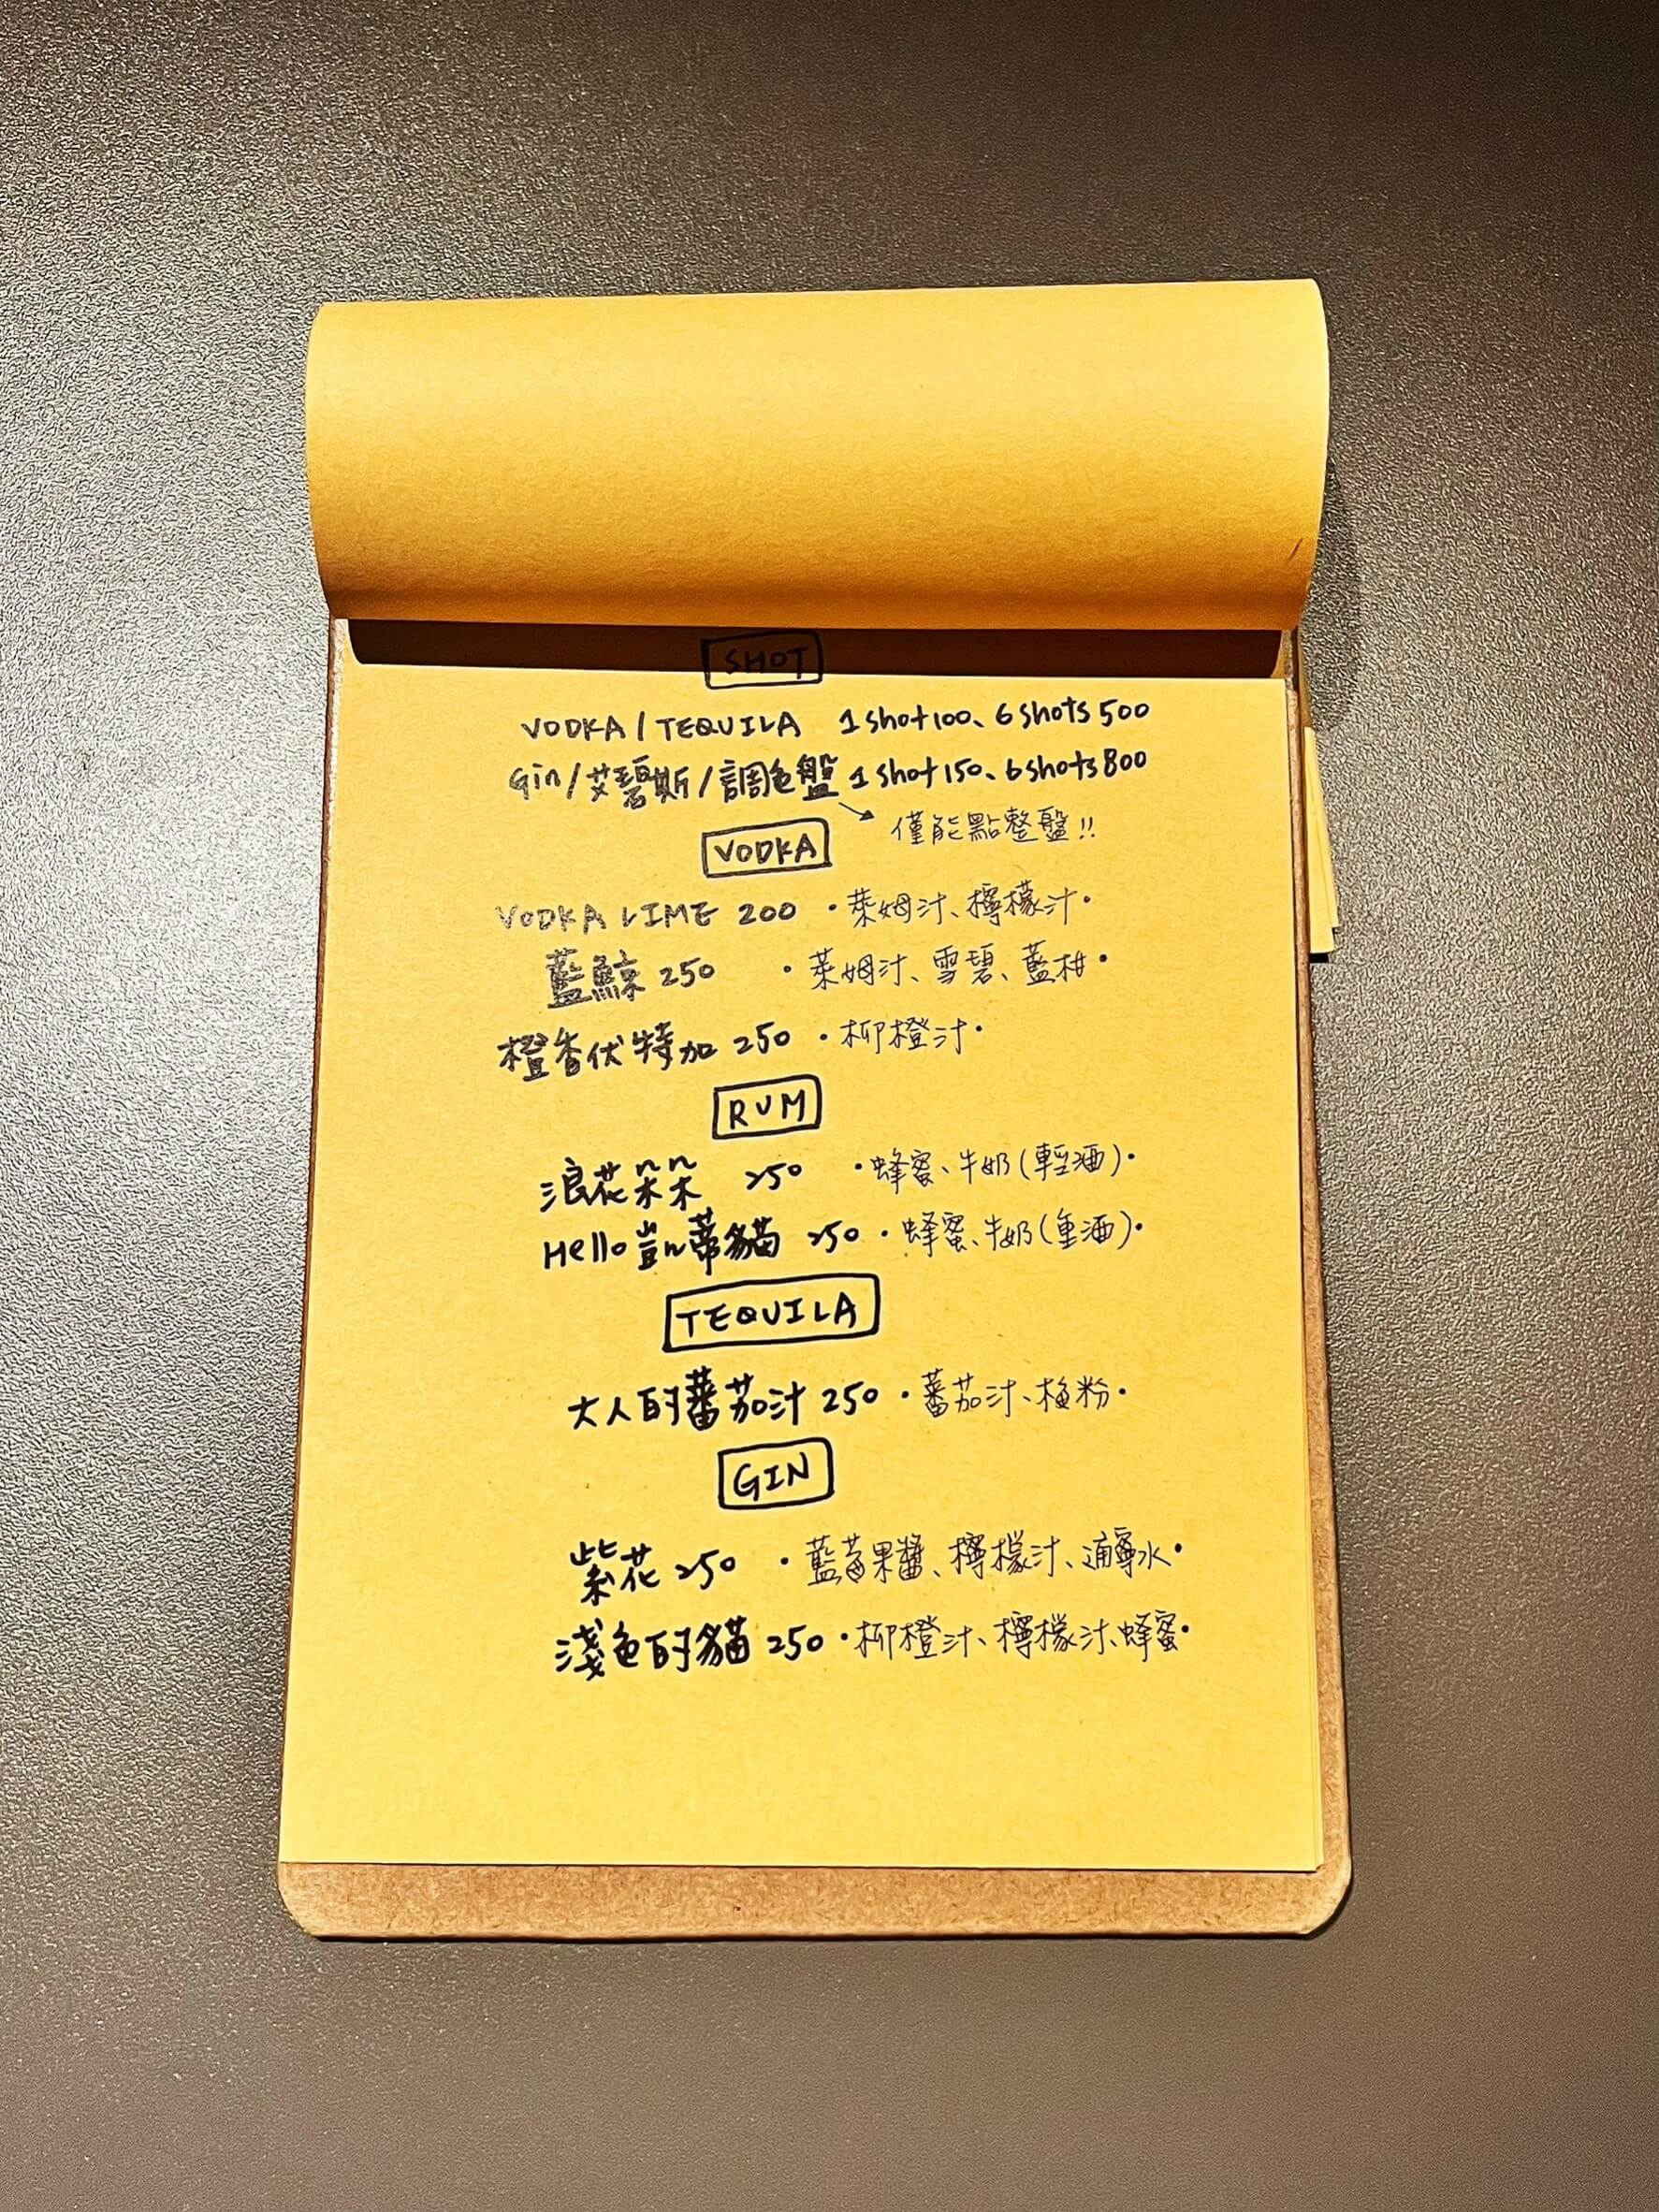 SHOT
VODKA / TEQUILA 1 shot 100、6 shots 500
Gin/艾碧斯/調色盤 1 shot 150、6 shots 800
→ 僅能點整盤!!
VODKA
VODKA LIME 200 ·萊姆汁、檸檬汁·
藍鯨 250 ·萊姆汁、雪碧、藍柑·
橙香伏特加 250 ·柳橙汁·
RUM
浪花朵朵 250 ·蜂蜜、牛奶(輕酒)·
Hello 凱蒂貓 250 ·蜂蜜、牛奶(重酒)·
TEQUILA
大人的蕃茄汁 250 ·蕃茄汁、梅粉·
GIN
紫花 250 ·藍莓果醬、檸檬汁、通寧水·
淺色的貓 250 ·柳橙汁、檸檬汁、蜂蜜·